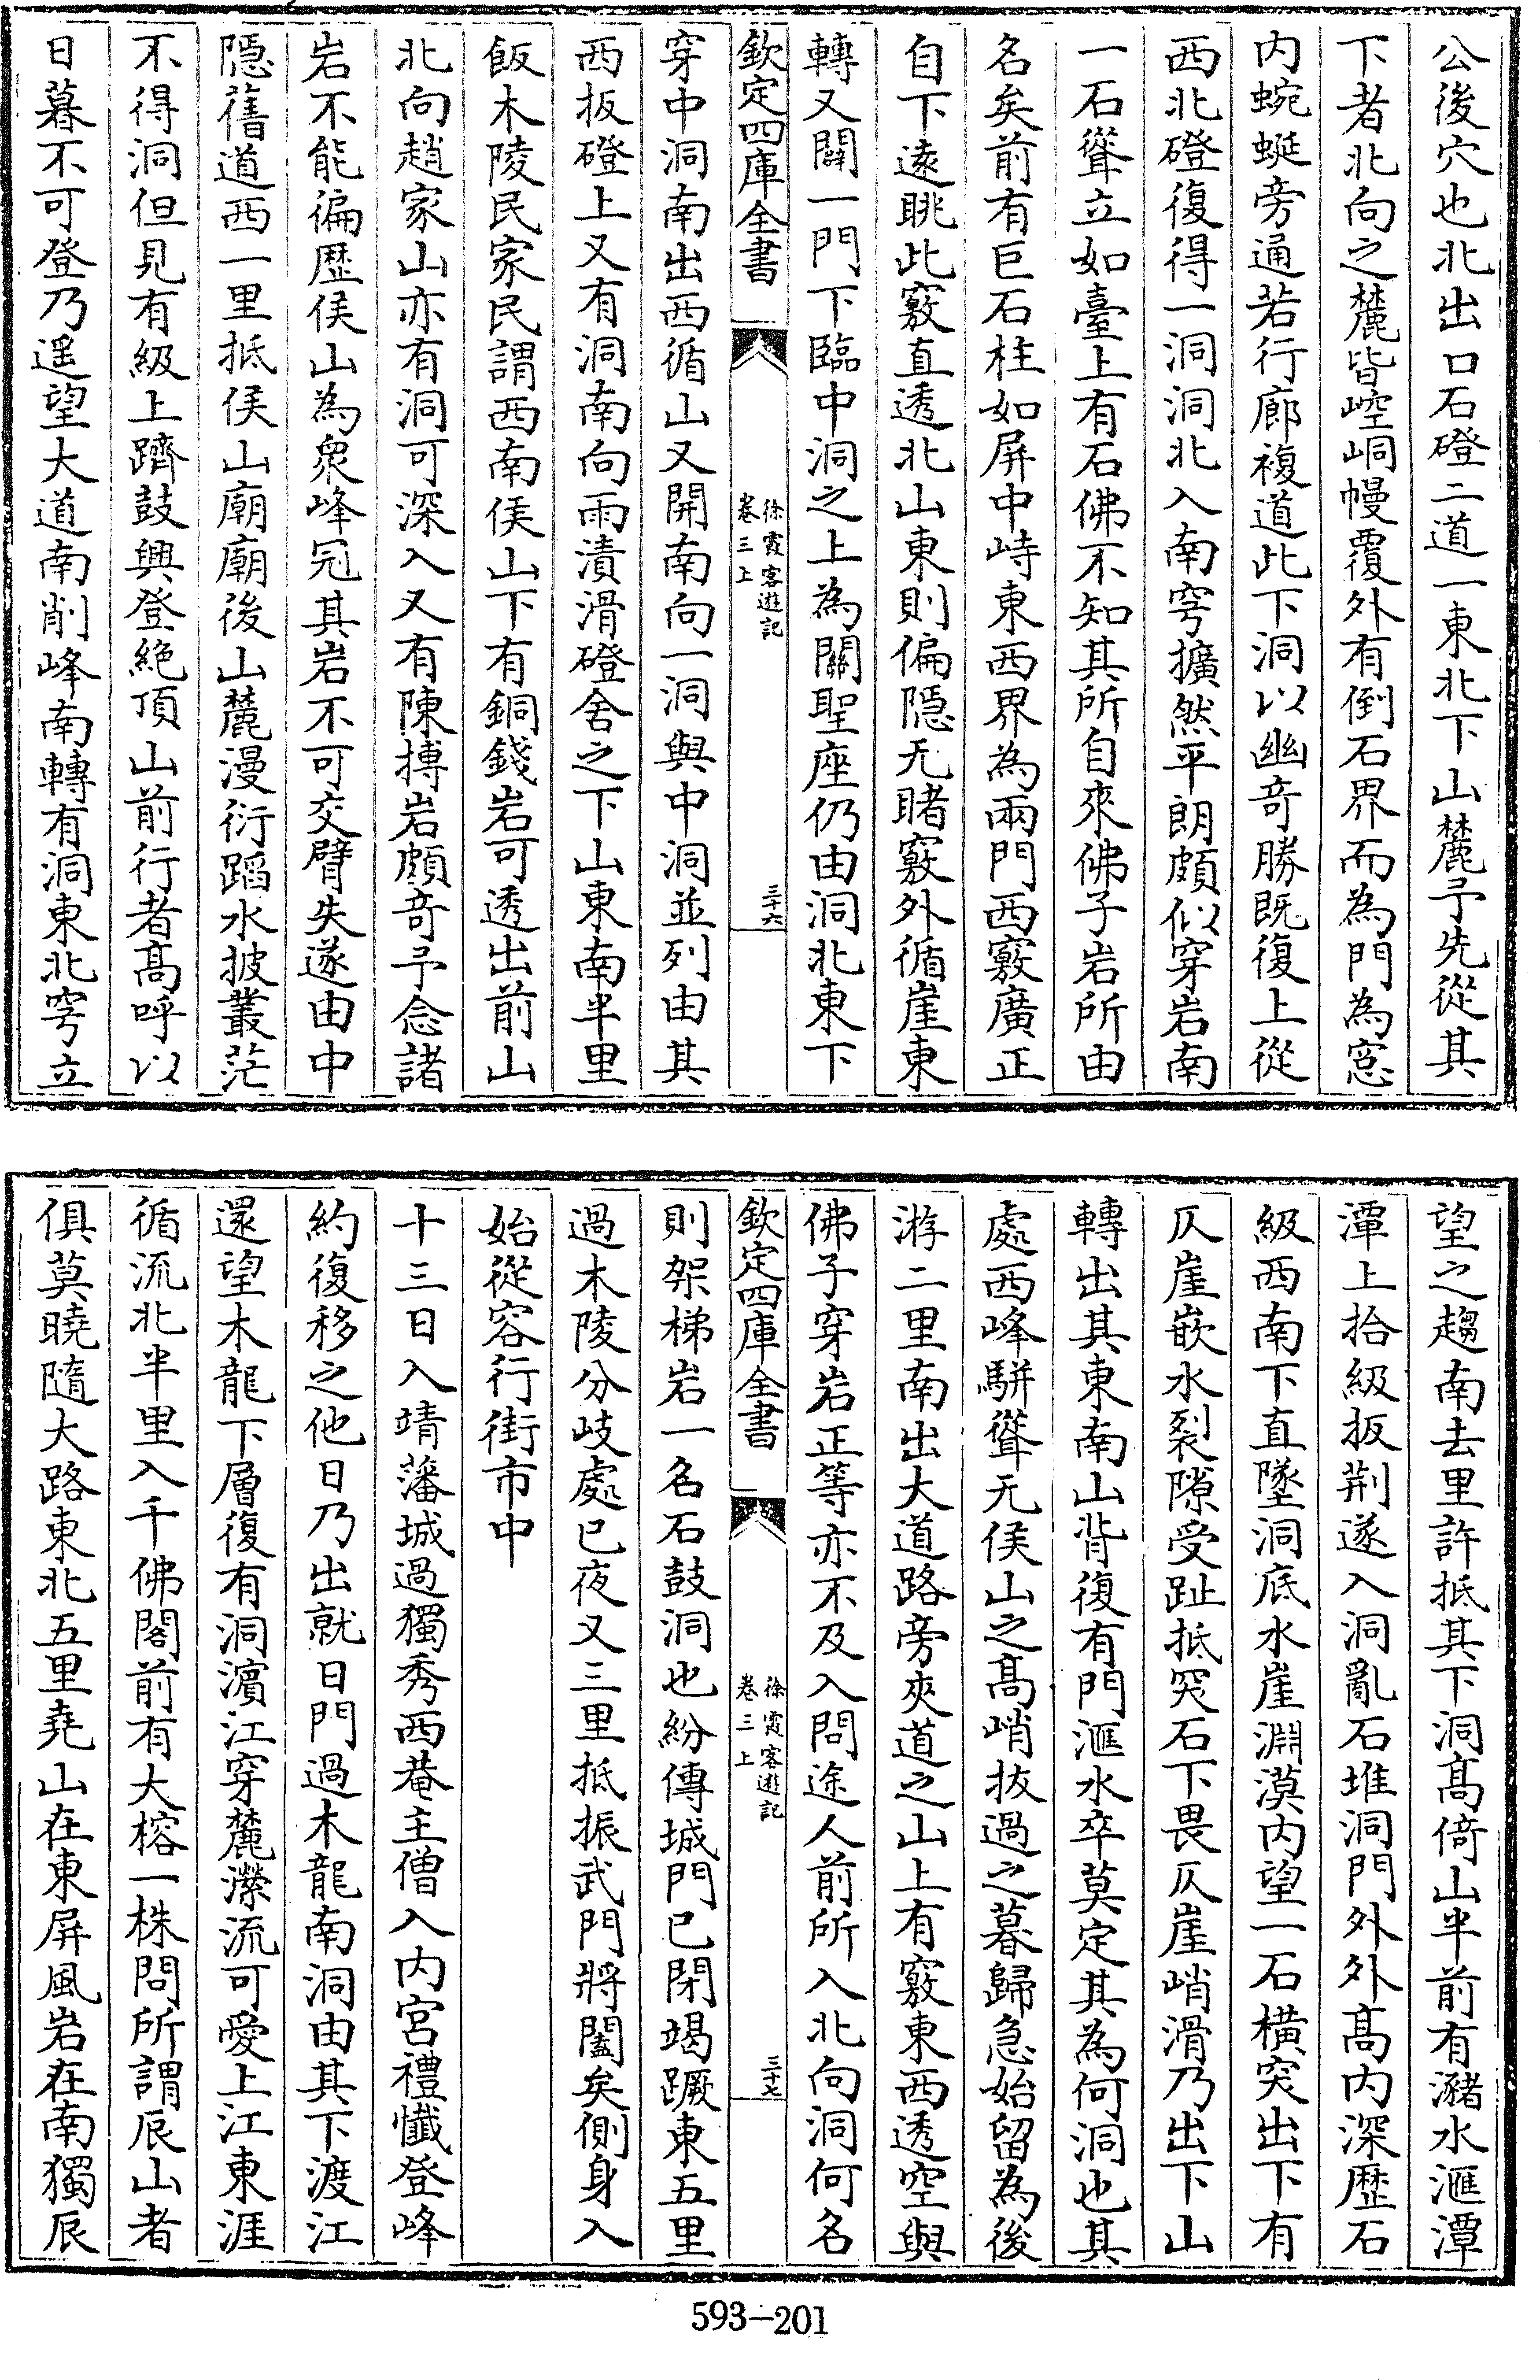 公後穴也北出口石磴二道一東北下山麓予先從其
下者北向之麓皆崆峒幔覆外有倒石界而為門為窓
内蜿蜒旁通若行廊複道此下洞以幽竒勝既復上從
西北磴復得一洞洞北入南穹擴然平朗頗似穿岩南
一石聳立如臺上有石佛不知其所自來佛子岩所由
名矣前有巨石柱如屏中峙東西界為兩門西竅廣正
自下逺眺此竅直透北山東則偏隠无睹竅外循崖東
轉又闢一門下臨中洞之上為關聖座仍由洞北東下
欽定四庫全書
徐霞客遊記
卷三上
三十六
穿中洞南出西循山又開南向一洞與中洞並列由其
西扳磴上又有洞南向雨漬滑磴舍之下山東南半里
飯木陵民家民謂西南侯山下有銅錢岩可透出前山
北向趙家山亦有洞可深入又有陳搏岩頗竒予念諸
岩不能徧歴侯山為衆峰冠其岩不可交臂失遂由中
隠舊道西一里抵侯山廟廟後山麓漫衍蹈水披叢茫
不得洞但見有級上躋鼓興登絶頂山前行者髙呼以
日暮不可登乃遥望大道南削峰南轉有洞東北穹立
望之趨南去里許抵其下洞髙倚山半前有瀦水滙潭
潭上拾級扳荆遂入洞亂石堆洞門外外髙内深歴石
級西南下直墜洞底水崖淵漠内望一石横突出下有
仄崖嵌水裂隙受趾抵突石下畏仄崖峭滑乃出下山
轉出其東南山背復有門滙水卒莫定其為何洞也其
處西峰駢聳无侯山之髙峭拔過之暮歸急始留為後
游二里南出大道路旁夾道之山上有竅東西透空與
佛子穿岩正等亦不及入問途人前所入北向洞何名
欽定四庫全書
徐霞客遊記
卷三上
三十七
則架梯岩一名石鼓洞也紛傳城門已閉竭蹶東五里
過木陵分岐處已夜又三里抵振武門將闔矣側身入
始從容行街市中
十三日入靖藩城過獨秀西菴主僧入内宫禮懺登峰
約復移之他日乃出就日門過木龍南洞由其下渡江
還望木龍下層復有洞濵江穿麓瀠流可愛上江東涯
循流北半里入千佛閣前有大榕一株問所謂辰山者
俱莫曉隨大路東北五里堯山在東屏風岩在南獨辰
593-201